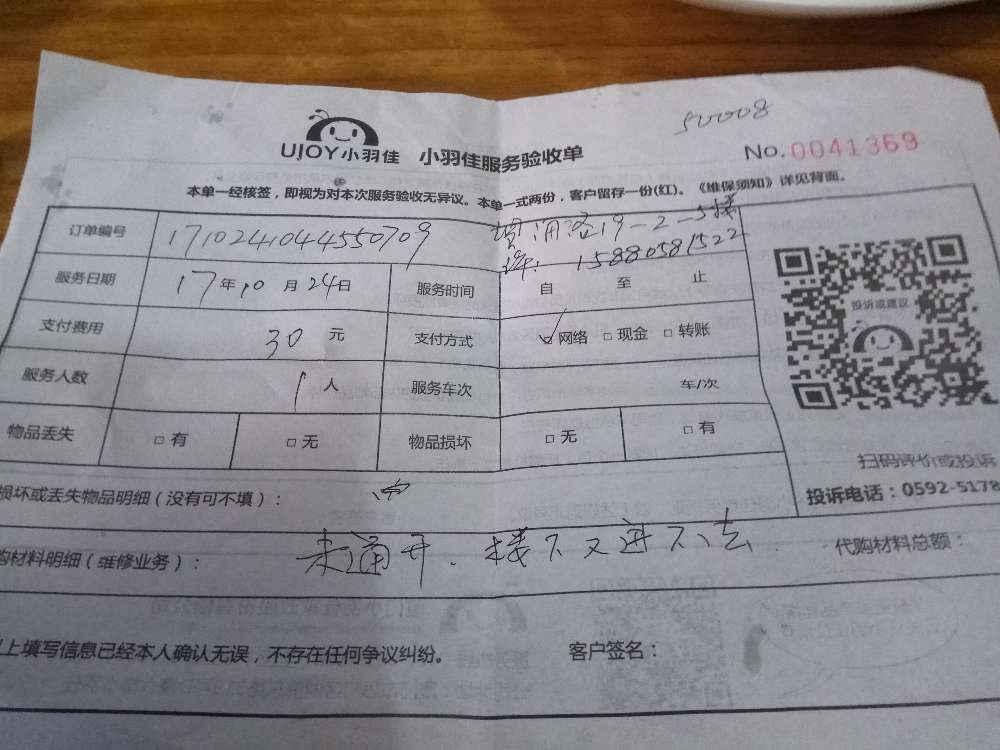 50008
UJOY小羽佳 小羽佳服务验收单 No.0041369
本单一经核签，即视为对本次服务验收无异议。本单一式两份，客户留存一份(红)。《维保须知》详见背面。
订单编号 1710241044550709 19-2-5楼
15880581522
服务日期 17年10月24日 服务时间 自 至 止
支付费用 30元 支付方式 ☑网络 □现金 □转账
投诉或建议
服务人数 1人 服务车次 车/次
物品丢失 □有 □无 物品损坏 □无 □有
扫码评价或投诉
损坏或丢失物品明细（没有可不填）：
投诉电话：0592-5178
购材料明细（维修业务）： 未通开．楼下又进不去 代购材料总额：
上填写信息已经本人确认无误，不存在任何争议纠纷。 客户签名：